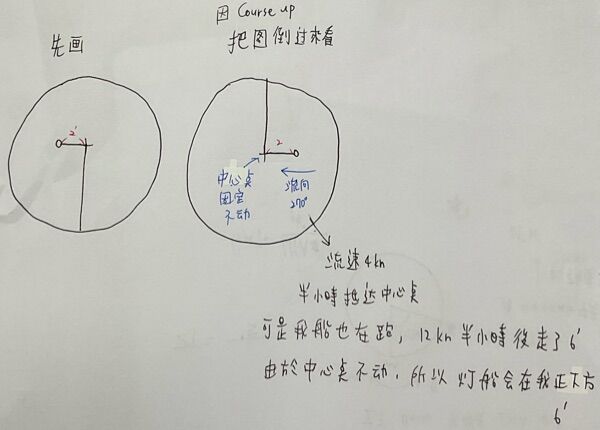 先画
因 Course up
把图倒过来看
2'
2
中心桌
固定
不动
流向
270°
流速4kn
半小時抵达中心桌
可是我船也在跑，12kn 半小時後走了6'
由於中心桌不动，所以 灯船会在我正下方
6'